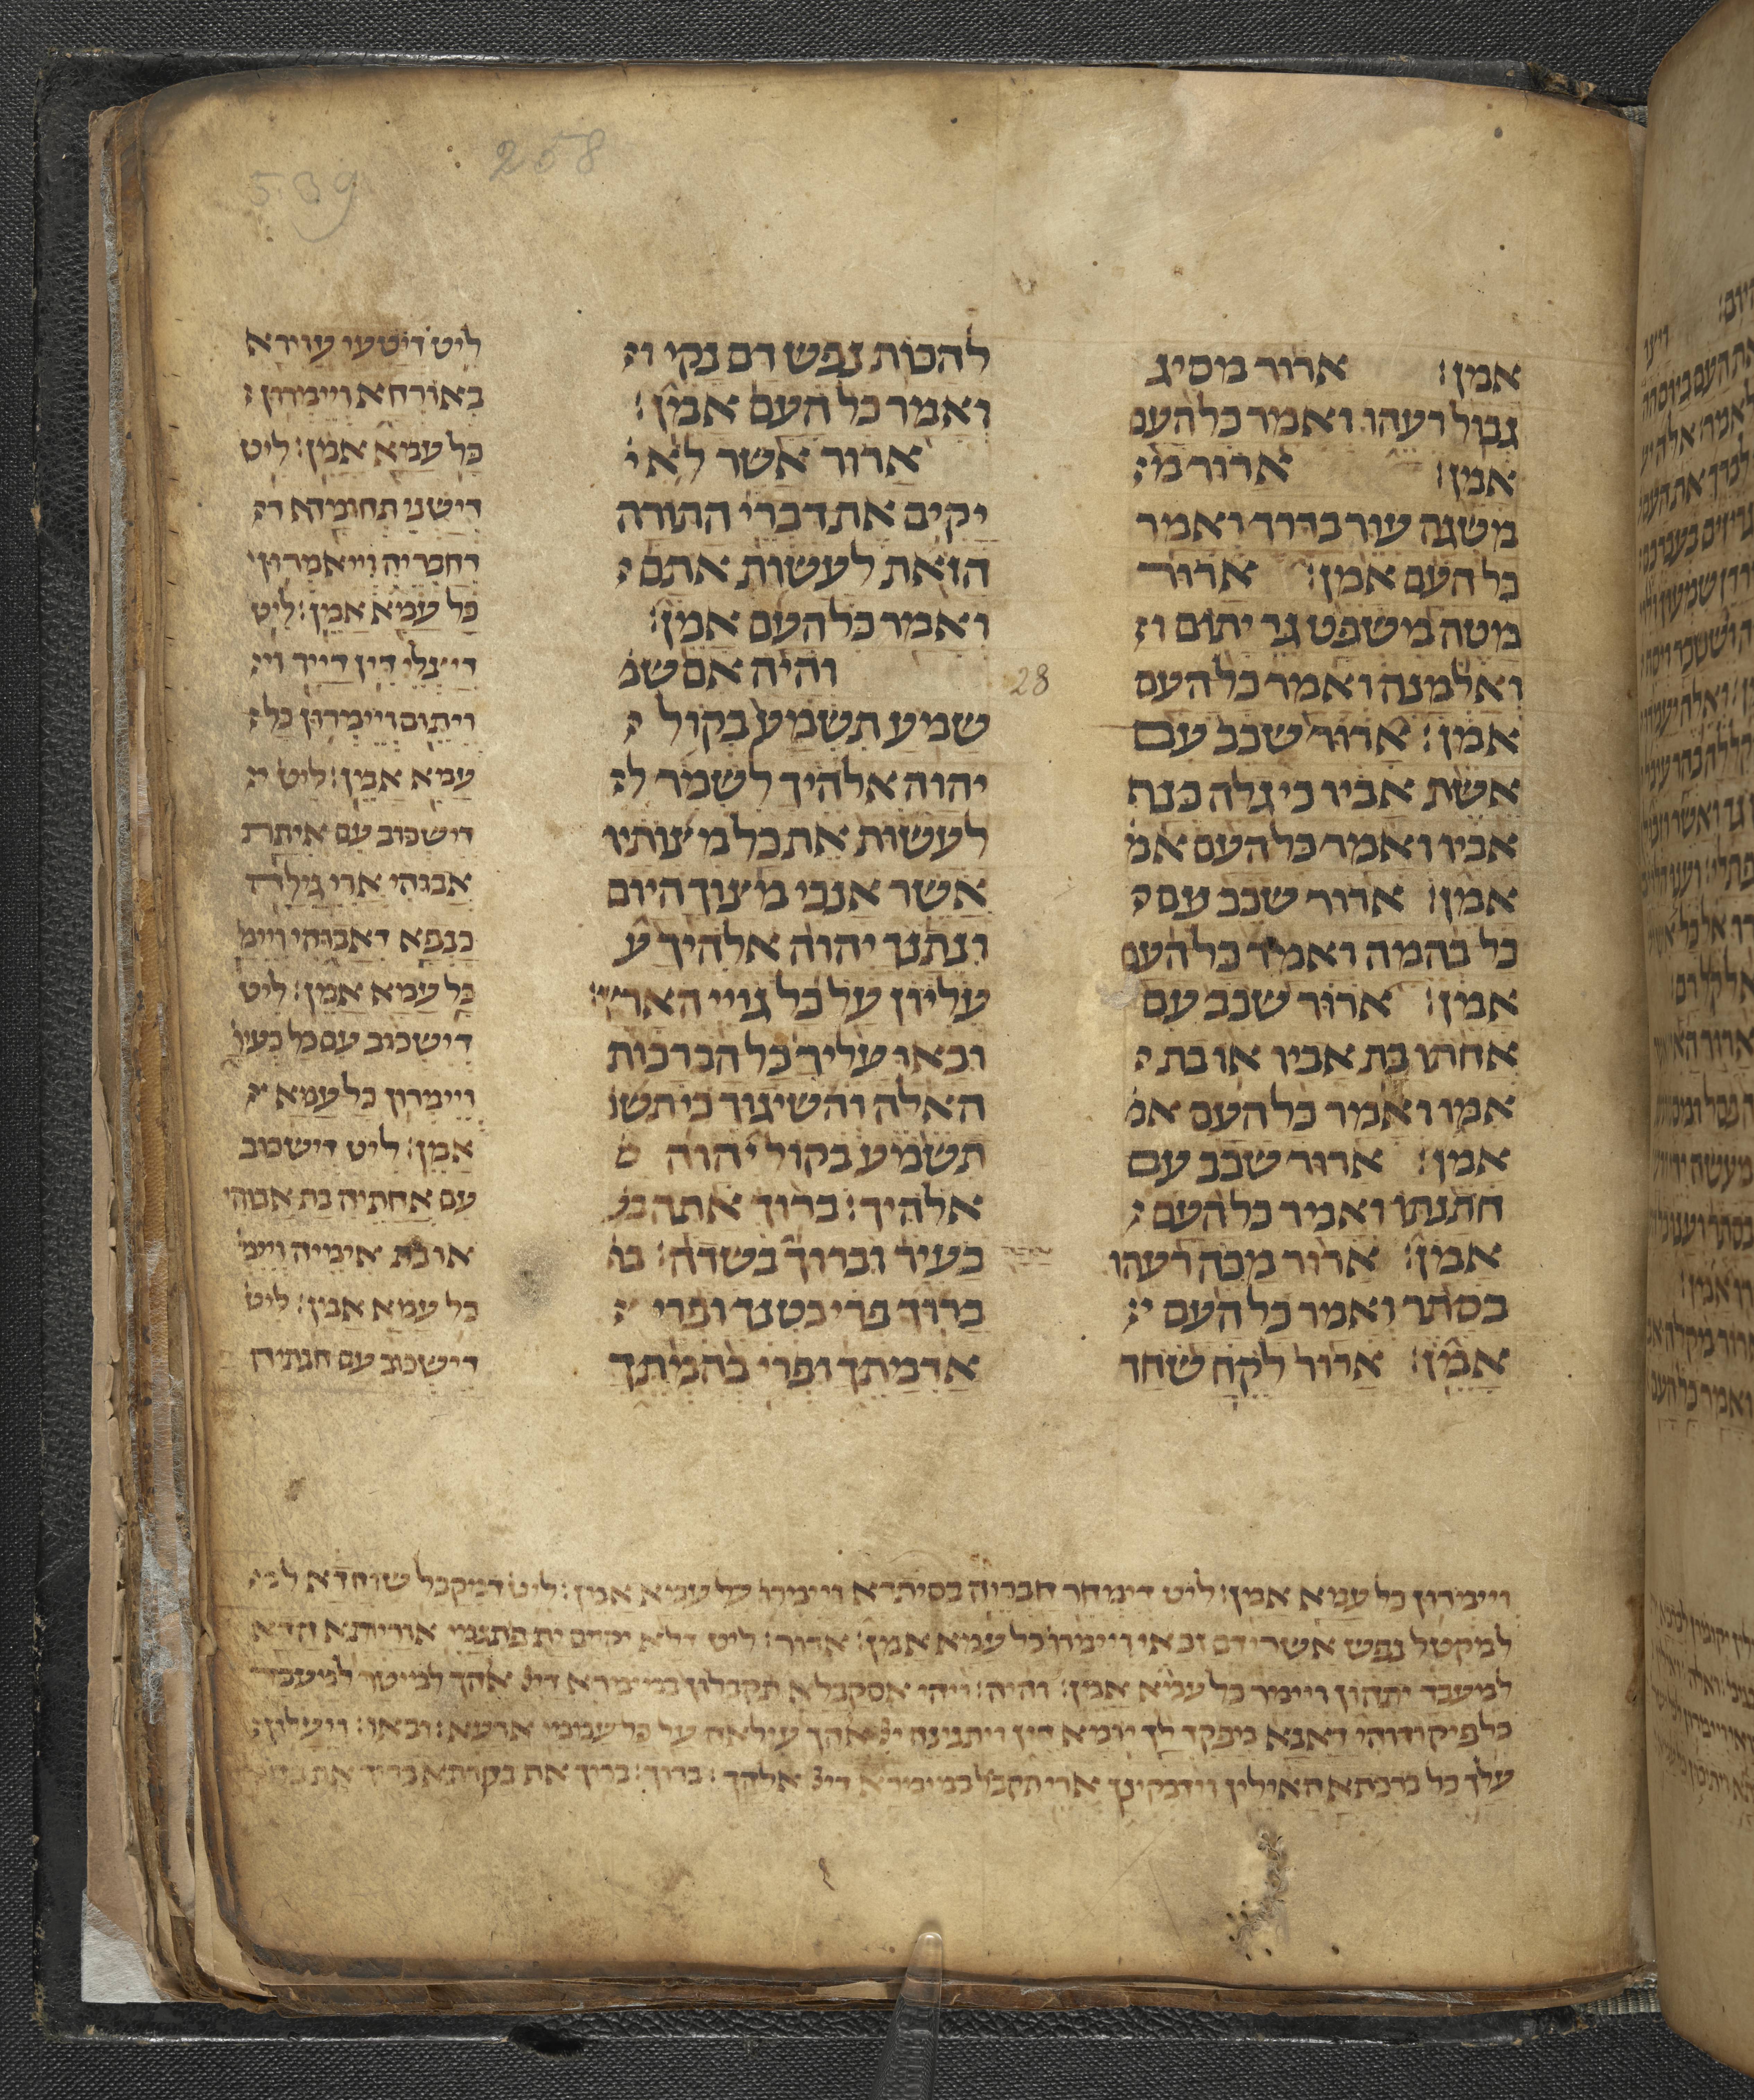 258
539
אמן׃ ארור מסיג
גבול רעהו ואמר כל העם
אמן׃ ארור מ
משגה עור בדרך ואמר
כל העם אמן׃ ארור
מטה משפט גר יתום ו
ואלמנה ואמר כל העם
אמן׃ ארור שכב עם
אשת אביו כי גלה כנף
אביו ואמר כל העם אמ
אמן׃ ארור שכב עם
כל בהמה ואמר כל העם
אמן׃ ארור שכב עם
אחתו בת אביו או בת
אמו ואמר כל העם אמ
אמן׃ ארור שכב עם
חתנתו ואמר כל העם
אמן׃ ארור מכה רעהו
בסתר ואמר כל העם
אמן׃ ארור לקח שחד
להכות נפש דם נקי ו
ואמר כל העם אמן׃
ארור אשר לא י
יקים את דברי התורה
הזאת לעשות אתם
ואמר כל העם אמן׃
28 והיה אם שמ
שמע תשמע בקול
יהוה אלהיך לשמר ל
לעשות את כל מצותיו
אשר אנכי מצוך היום
ונתנך יהוה אלהיך ע
עליון על כל גויי הארץ׃
ובאו עליך כל הברכות
האלה והשיגוך כי תש
תשמע בקול יהוה
אלהיך׃ ברוך אתה בע
בעיר וברוך בשדה׃ בר
ברוך פרי בטנך ופרי
אדמתך ופרי בהמתך
ליט דיטעי עוירא
באורחא ויימרון
כל עמא אמן׃ ליט
דישני תחומא ד
דחבריה וייאמרון
כל עמא אמן׃ ליט
דיצלי דין דייר וי
ויתום ויימרון כל
עמא אמן׃ ליט
דישכוב עם איתת
אבוהי ארי גילי
כנפא דאבוהי ויימ
כל עמא אמן׃ ליט
דישכוב עם כל בעיר
ויימרון כל עמא
אמן׃ ליט דישכוב
עם אחתיה בת אבוהי
או בת אימיה ויימ
כל עמא אמן׃ ליט
דישכוב עם חמתיה
ויימרון כל עמא אמן׃ ליט דימחי חבריה בסיתרא ויימרון כל עמא אמן׃ ליט דמקבל שוחדא
למקטל נפש אשר דם זכאי ויימרון כל עמא אמן׃ ארור׃ ליט דלא יקים ית פתגמי אוריתא הדא
למעבד יתהון ויימר כל עמא אמן׃ והיה׃ ויהי אם קבלא תקבלון במימרא דייי אלהך למיטר למעבד
כל פיקודוהי דאנא מפקד לך יומא דין ויתנינך ייי אלהך עילאה על כל עממי ארעא׃ ובאו׃ וייעלון
עלך כל ברכתא האילין וידבקינך ארי תקבל במימרא דייי אלהך׃ ברוך׃ בריך את בקרתא בריך את